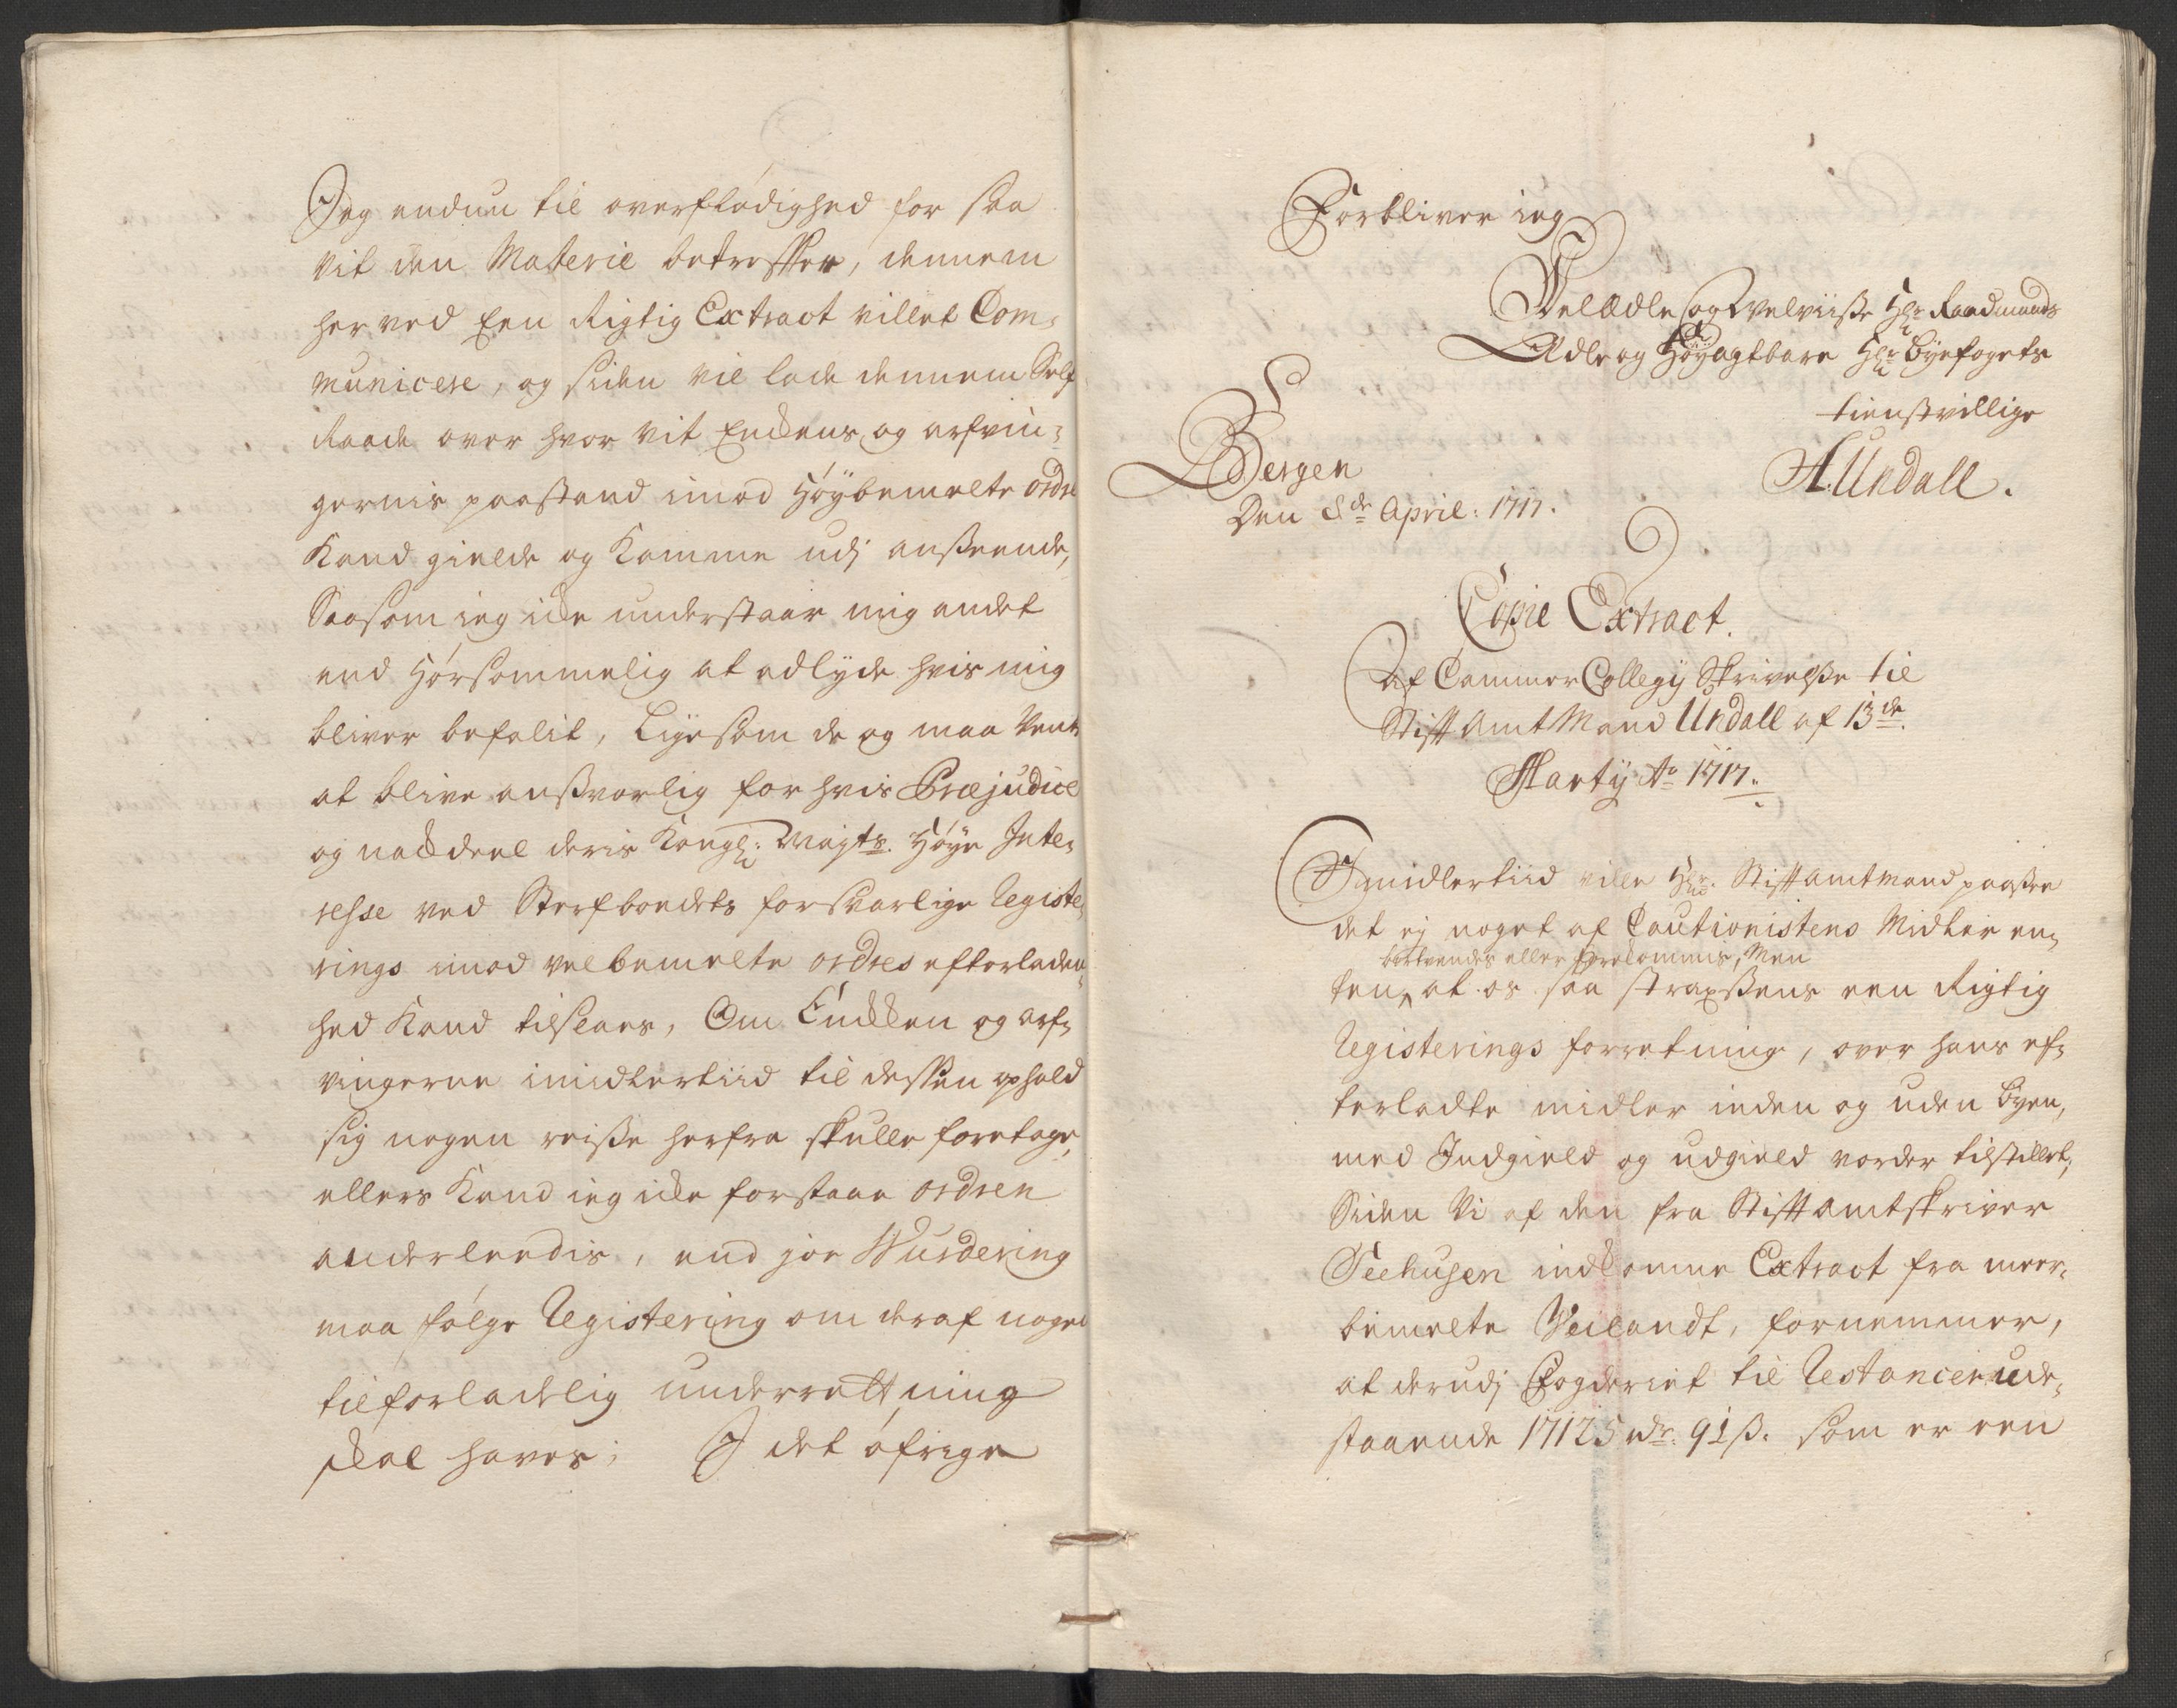 Jeg endnu til overflødighed for saa
vit den Materie betreffer, dennem
her ved Een Rigtig Extract villet Com-
municere, og siden vil lade dennem Self
Raade over hvor vit Enkens og arfvin-
gernis paastand imod høybemelte ordre
Kand gielde og komme udj anseende,
Saasom ieg icke understaar mig andet
end hørsommelig at adlyde hvis mig
bliver befalit, Ligesom de og maa vente
at blive ansvarlig for hvis Præjudice
og nackdeel deris Kongl: Mayts. høye Inte-
resse ved Sterfboedets forsvarlige Registe-
rings imod velbemelte ordres efterladen-
hed Kand tilføies, Om Encken og arf-
vingerne imidlertiid til dessen ophold
sig nogen reise herfra skulle foretage,
ellers Kand ieg icke forstaae ordren
anderleedis, end joe Wurdering
maa følge Registering om deraf nogen
tilforladelig underrettning
skal haves; I det øfrige
Forbliver ieg
Velædle og Velviise Hr. Raadmands
Ædle og Høyagtbare Hr. Byefogets
tienstvillige
A. Undall.
Bergen
Den 8de April: 1717.
Copie Extract.
Af Cammer Collegij Skrivelse til
Stift Amt Mand Undall af 13de
Martij Ao 1717.
Imidlertiid ville Hr. Stiftamtmand paasee
det ej noget af Cautionistens Midler en-
bortvendes eller forkommis, Men
ten, at os saa straxsens een Rigtig
Registerings forretning, over hans ef-
terladte midler inden og uden byen,
med Indgield og udgield vorder tilstillet,
Siden Vi af den fra Stiftamtskriver
Seehusen indkomne Extract fra meer-
bemelte Weilandt, fornemmer,
at derudj Fogderiet til Restancer ude-
staaende 17125 rdr. 91 ß. som er een